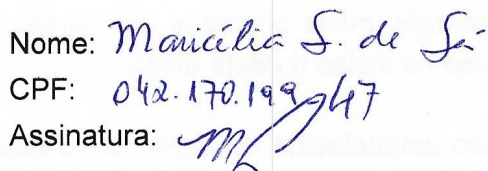 Nome: Maricélia S. de Sá
CPF: 042.170.199-47
Assinatura: